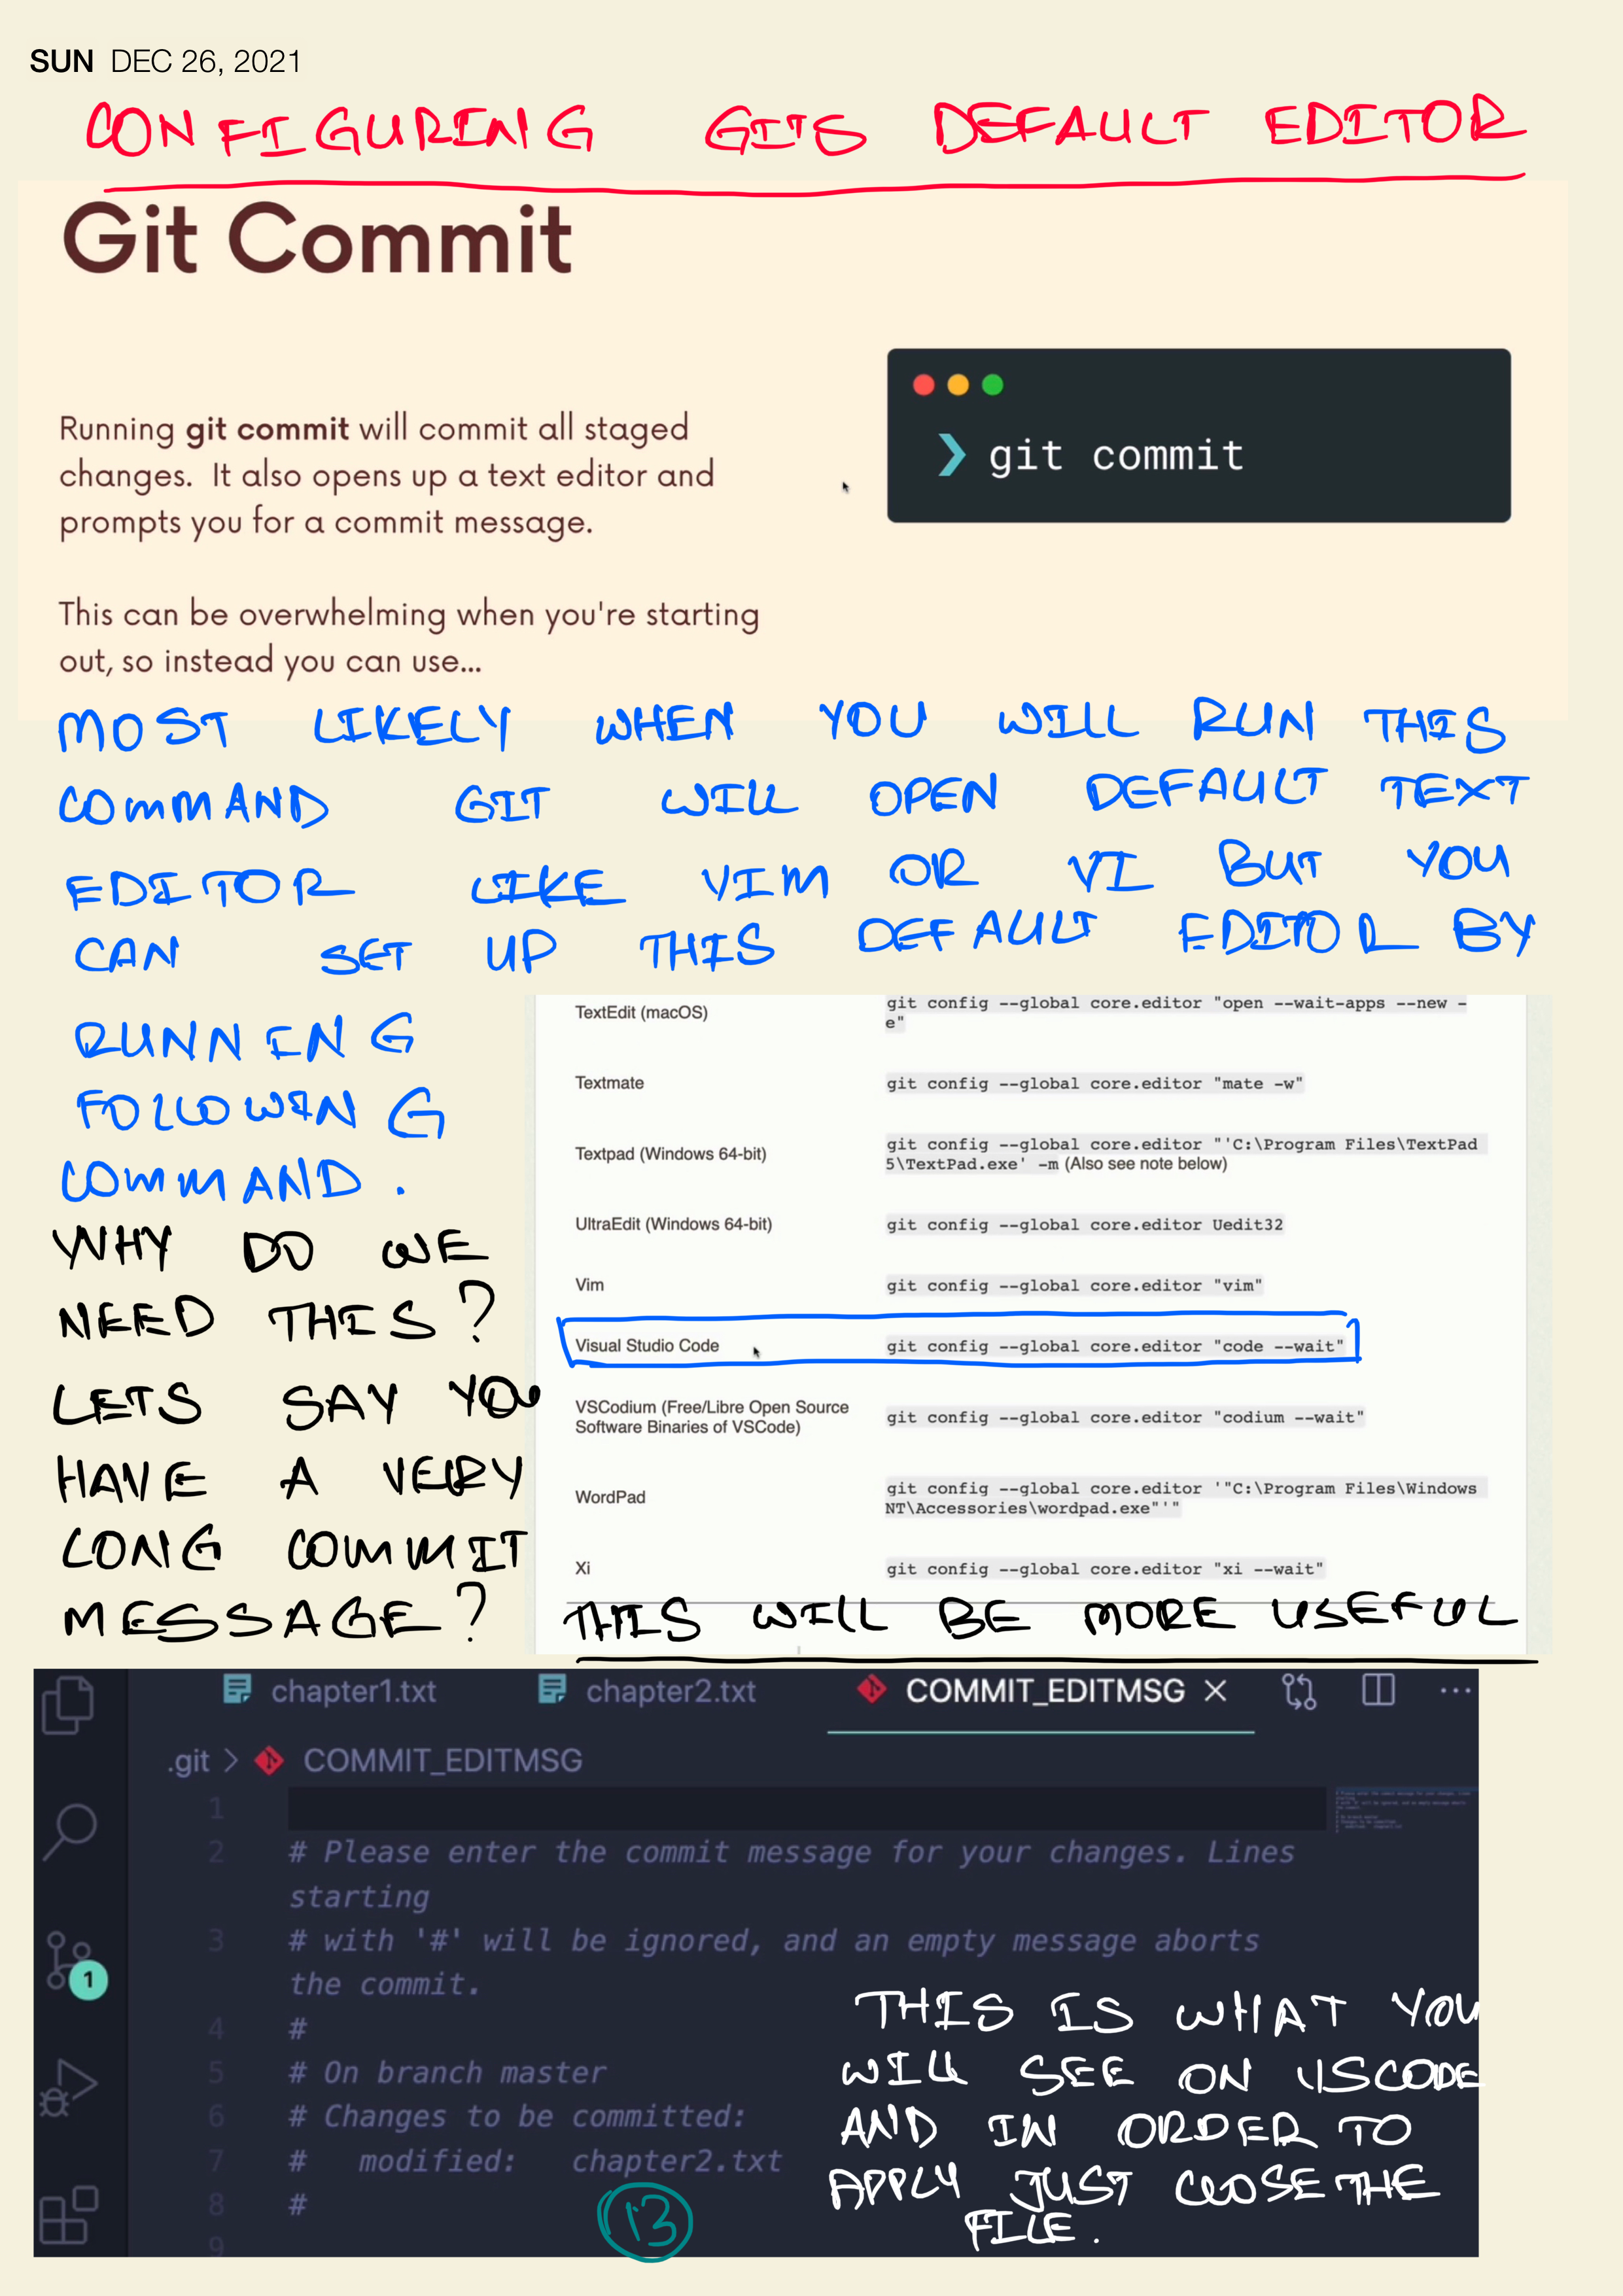 SUN DEC 26, 2021
CONFIGURING GITS DEFAULT EDITOR
Git Commit
Running git commit will commit all staged
changes. It also opens up a text editor and
prompts you for a commit message.
❯ git commit
This can be overwhelming when you're starting
out, so instead you can use...
MOST LIKELY WHEN YOU WILL RUN THIS
COMMAND GIT WILL OPEN DEFAULT TEXT
EDITOR LIKE VIM OR VI BUT YOU
CAN SET UP THIS DEFAULT EDITOR BY
RUNNING
FOLLOWING
COMMAND.
WHY DO WE
NEED THIS?
LETS SAY YOU
HAVE A VERY
LONG COMMIT
MESSAGE?
TextEdit (macOS) git config --global core.editor "open --wait-apps --new -
e"
Textmate git config --global core.editor "mate -w"
Textpad (Windows 64-bit) git config --global core.editor "'C:\Program Files\TextPad
5\TextPad.exe' -m (Also see note below)
UltraEdit (Windows 64-bit) git config --global core.editor Uedit32
Vim git config --global core.editor "vim"
Visual Studio Code git config --global core.editor "code --wait"
VSCodium (Free/Libre Open Source
Software Binaries of VSCode) git config --global core.editor "codium --wait"
WordPad git config --global core.editor '"C:\Program Files\Windows
NT\Accessories\wordpad.exe"'"
Xi git config --global core.editor "xi --wait"
THIS WILL BE MORE USEFUL
chapter1.txt chapter2.txt COMMIT_EDITMSG × ...
.git > COMMIT_EDITMSG
1
2 # Please enter the commit message for your changes. Lines
starting
3 # with '#' will be ignored, and an empty message aborts
the commit.
4 #
5 # On branch master
6 # Changes to be committed:
7 # modified: chapter2.txt
8 #
9
1
THIS IS WHAT YOU
WILL SEE ON VSCODE
AND IN ORDER TO
APPLY JUST CLOSE THE
FILE.
13